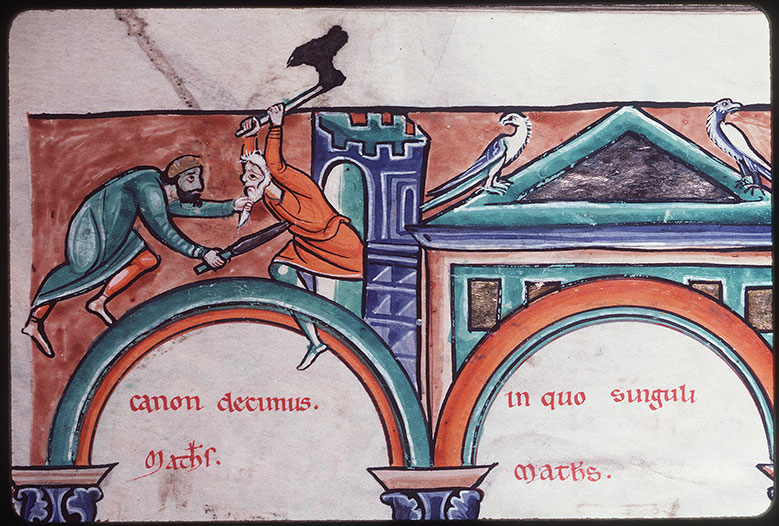 canon decimus.
Maths.
in quo singuli
Maths.